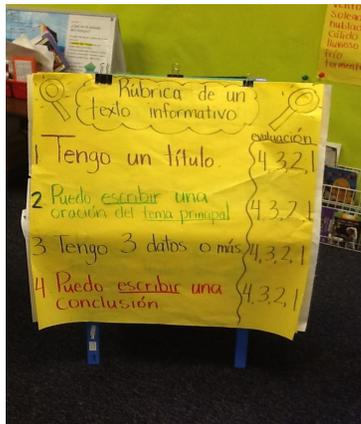 Rúbrica de un
texto informativo
evaluación
1 Tengo un título. 4,3,2,1
2 Puedo escribir una
oración del tema principal 4,3,2,1
3 Tengo 3 datos o más 4,3,2,1
4 Puedo escribir una
conclusión 4,3,2,1
soleado
nublado
cálido
lluvioso
frío